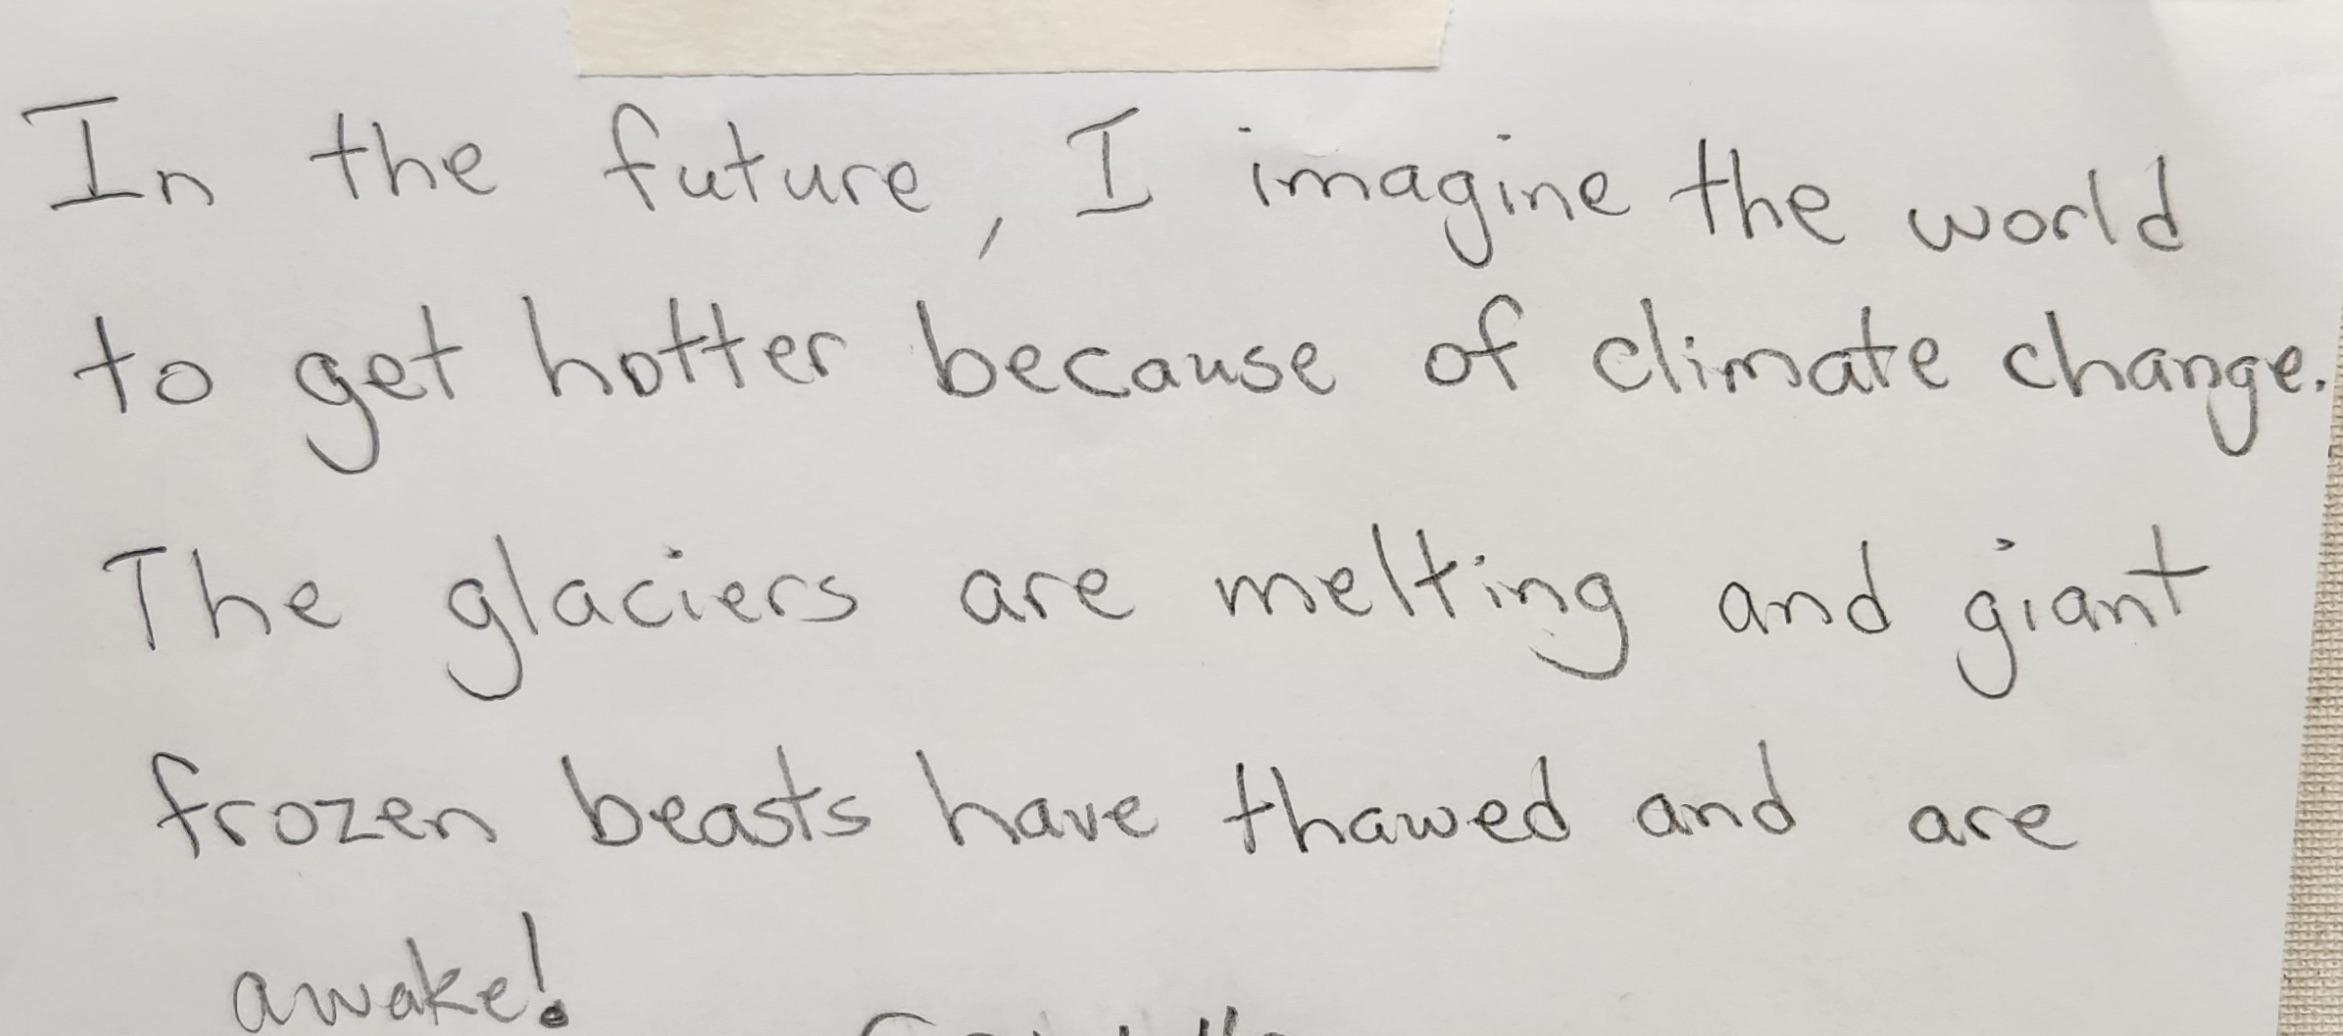 In the future, I imagine the world
to get hotter because of climate change.
The glaciers are melting and giant
frozen beasts have thawed and are
awake!